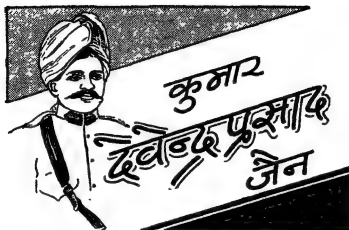 कुमार
देवेन्द्रप्रसाद
जैन